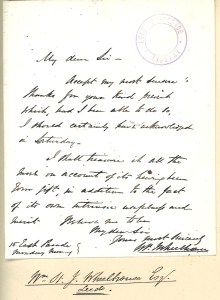 My dear Sir -
Accept my most sincere
thanks for your kind
which, had I been able to do so,
I should certainly have acknowledged
on Saturday.
I shall treasure it all the
more on account of its having been
your gift in addition to the fact
of its own intrinsic
merit Believe me to be
My dear Sir
Yours most sincerely
15 East Parade
Monday
Wm. St. J. Wheelhouse Esq.
Leeds.